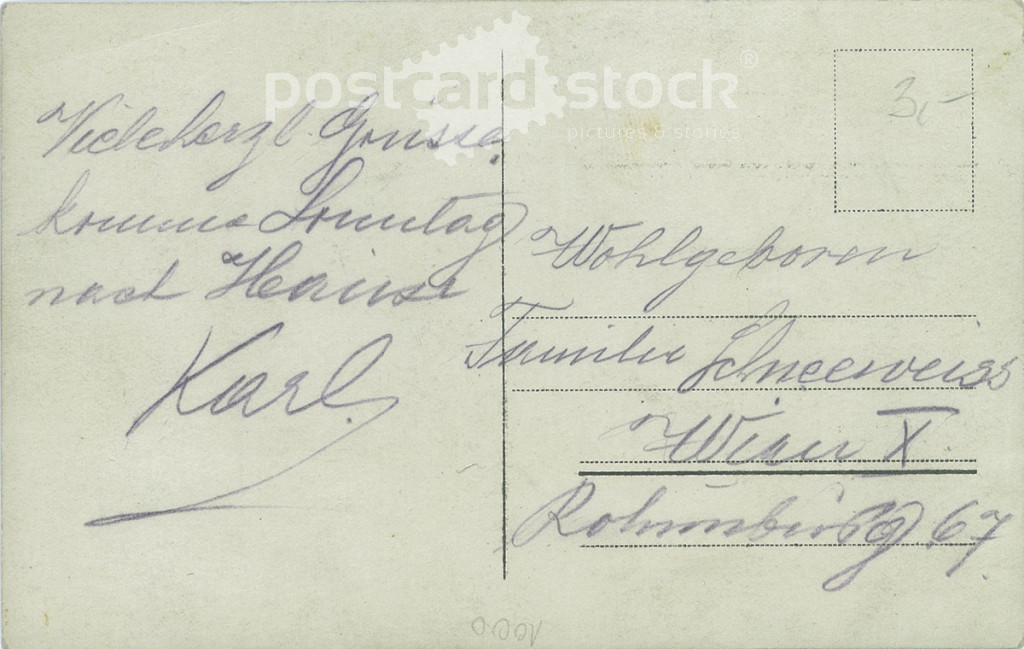 postcardstock®
pictures & stories
3,-
Viele herzl. Grüsse
komme Sonntag
nach Hause
Karl.
Wohlgeboren
Familie Schneeweiss
Wien X
67